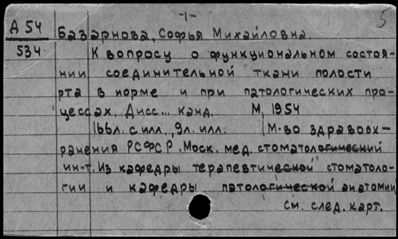 -1-
5
А 54
534
Базарнова, Софья Михайловна.
К вопросу о функциональном состоя-
нии соединительной ткани полости
рта в норме и при патологических про-
цессах. Дисс... канд. М, 1954
166л. с илл., 9л. илл. (М-во здравоох-
ранения РСФСР. Моск. мед. стоматологический
ин-т. Из кафедры терапевтической стоматоло-
гии и кафедры патологической анатомии
См. след. карт.